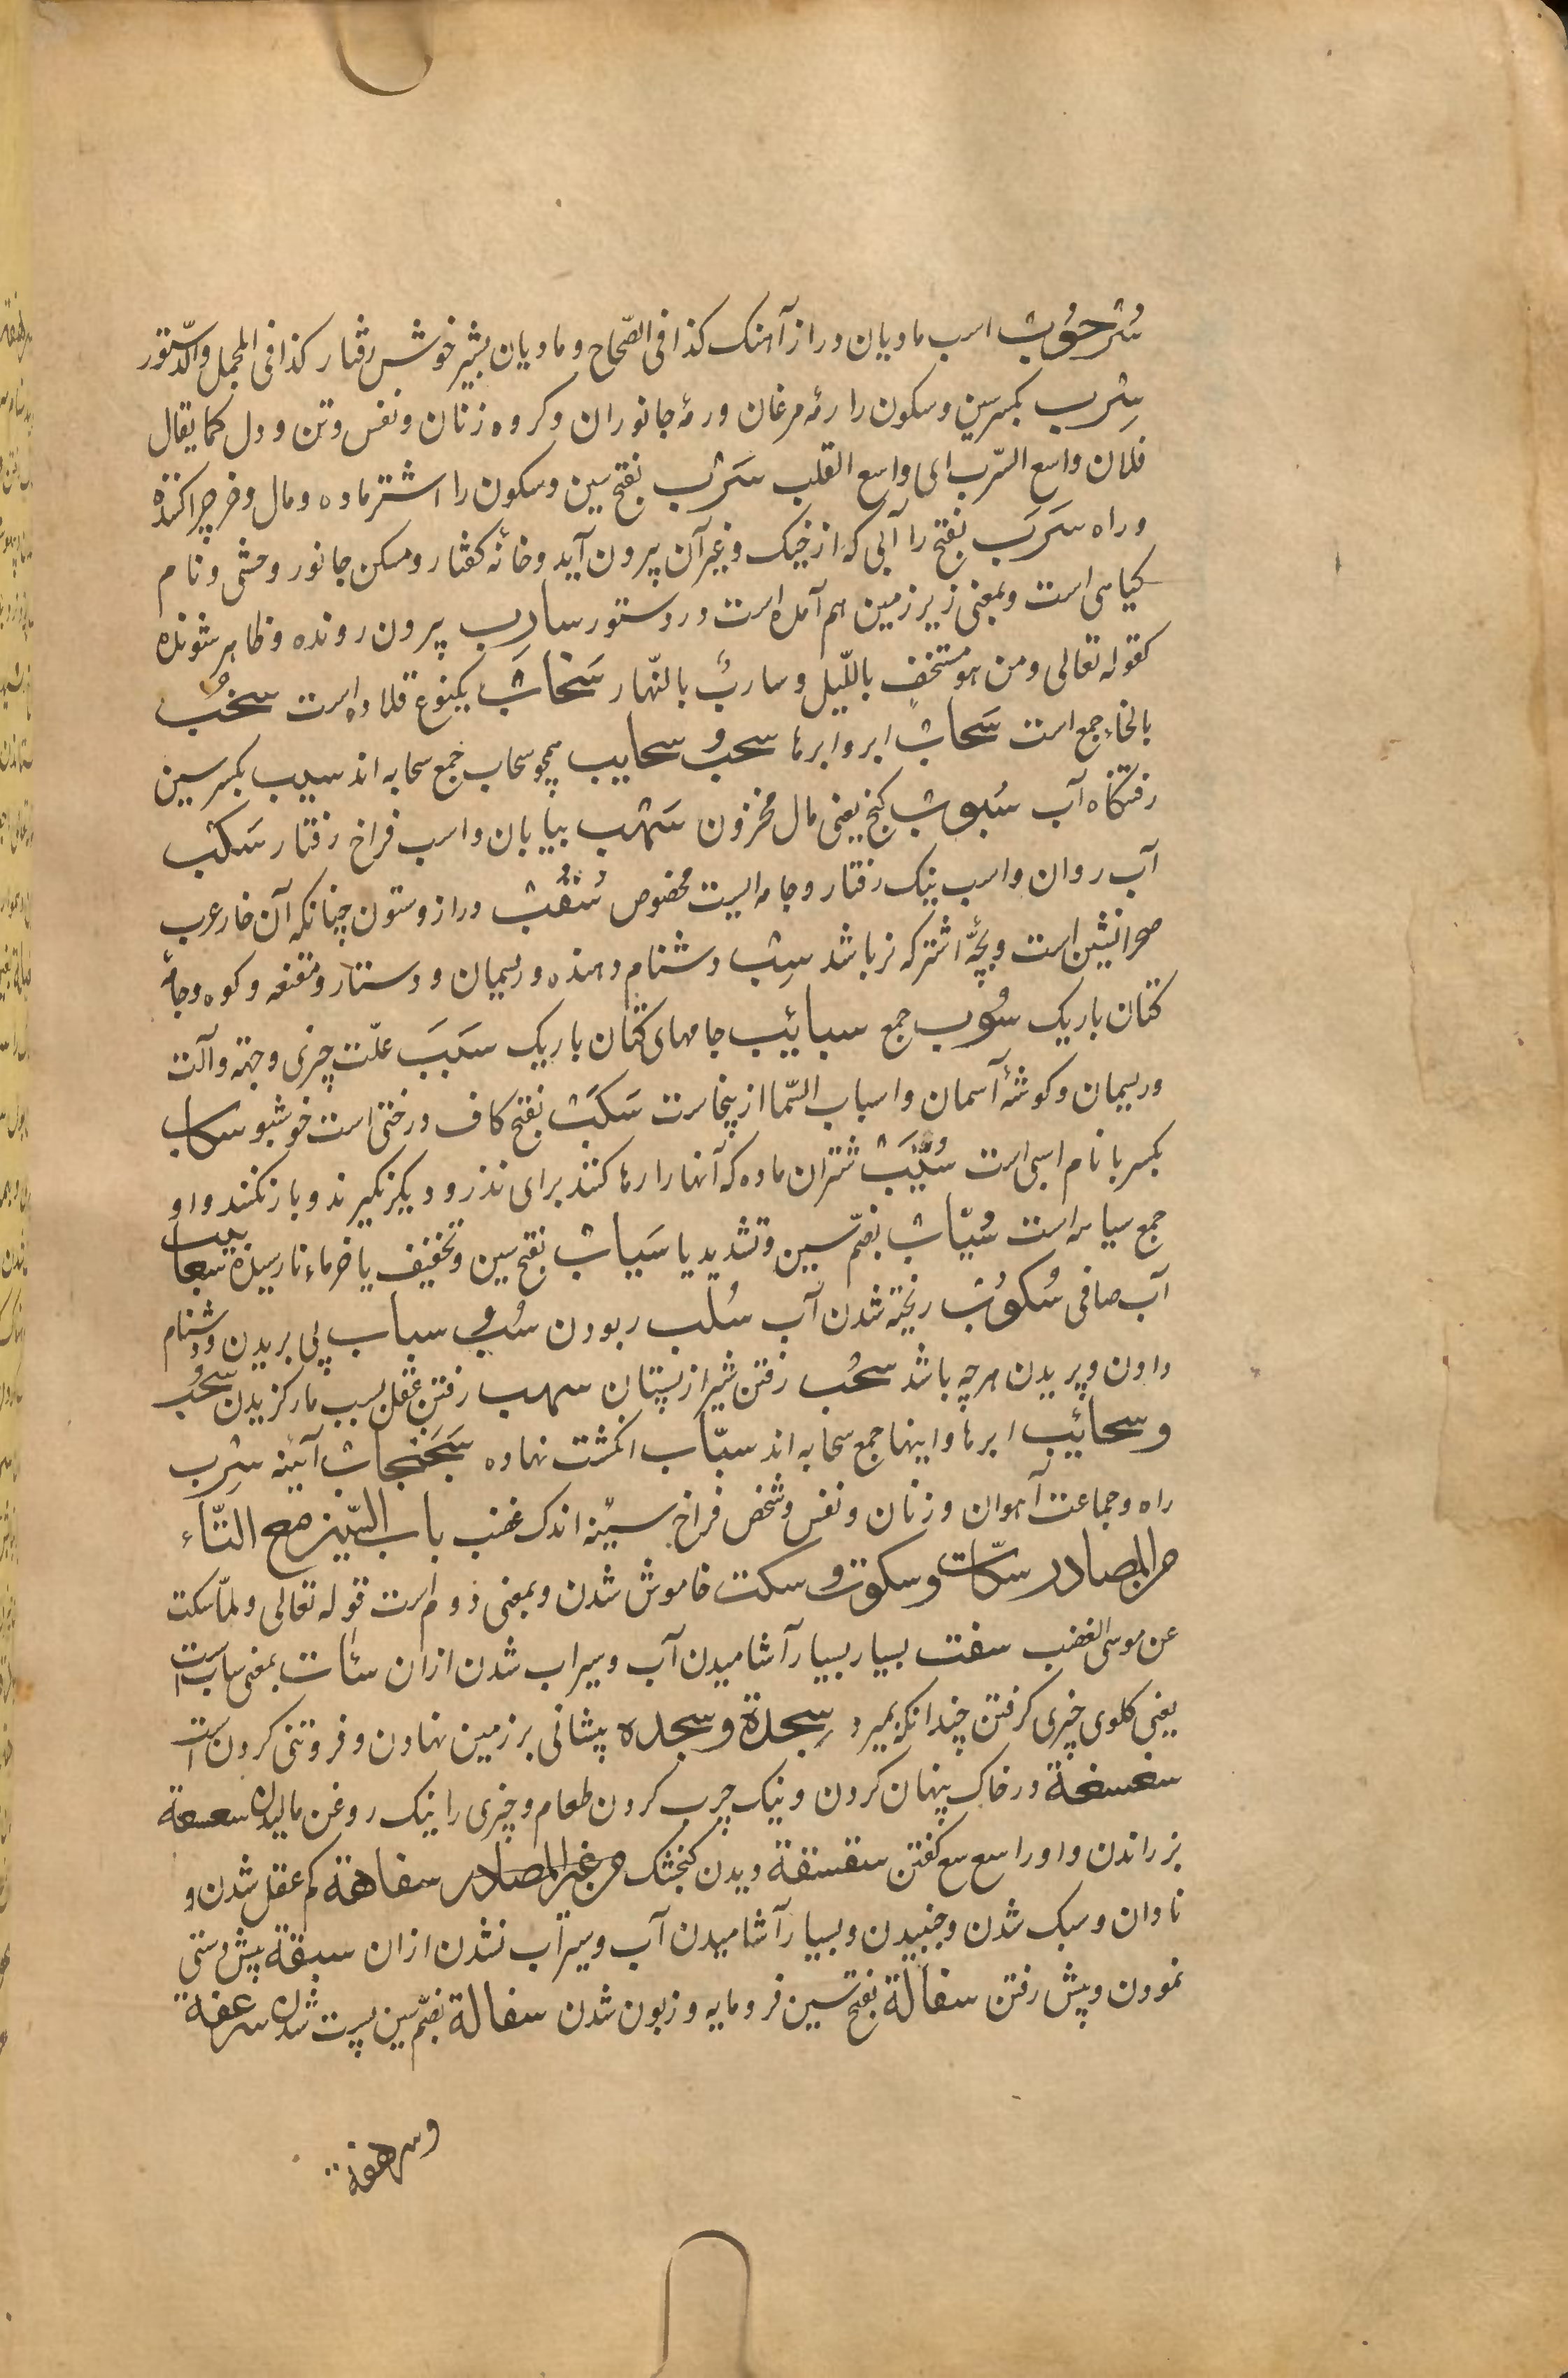 سُرحُوب اسب مادیان دراز آهنک کذا فی الصّحاح و مادیان بشیر خوش رفتار کذا فی المجمل والدّستور
سِرب بکسر سین و سکون را رمه مرغان و رمهٔ جانوران و کروه زنان و نفس و تن و دل کما یقال
فلان واسع السّرب ای واسع القلب سَرب بفتح سین و سکون را اشتر ماده و مال و خر چراکننده
و راه سَرَب بفتح را آبی که از خیک و غیر آن بیرون آید و خانهٔ کفتار و مسکن جانور وحشی و نام
کیاهی است و بمعنی زیر زمین هم آمده است در دستور سارِب بیرون رونده و ظاهر شونده
کقوله تعالی ومن هو مستخفٍ باللّیل وساربٌ بالنّهار سَخاب یکنوع قلاده است سخُب
بالخاء جمع است سَحاب ابر و ابرها سحب و سحایب همچو سحاب جمع سحابه اند سیب بکسر سین
رفتنکاه آب سُیوب کنج یعنی مال مخزون سَهب بیابان و اسب فراخ رفتار سَکب
آب روان و اسب نیک رفتار و جامه ایست مخصوص سُقُب دراز و ستون چنانکه آن خار عرب
صحرانشین است و بچّهٔ اشتر که نر باشد سِب دشنام دهنده و ریسمان و دستار و مقنعه و کوه و جامهٔ
کتان باریک سُوب جمع سبائیب جامهای کتان باریک سَبَبَ علّت چیزی و جهة و آلت
و ریسمان و کوشهٔ آسمان و اسباب السّما ازینجاست سَکَب بفتح کاف درختی است خوشبو سکاب
بکسر با نام اسبی است سُیَّب شتران ماده که آنها را رها کنند برای نذر و دیکر نکیرند و بار نکنند و او
جمع سیابه است سُیّاب بضمّ سین و تشدید یا سَیاب بفتح سین و تخفیف یا خرماء نارسیده سعابیب
آب صافی سُکوُب ریخته شدن آب سُلب ربودن سُب و سباب پی بریدن و دشنام
دادن و بریدن هر چه باشد سحُب رفتن شیر از پستان سهب رفتن عقل بسبب مار کزیدن سحُب
و سحائیب ابرها و اینها جمع سحابه اند سبّاب انکشت نهاده سَجَنجاب آیینه سِرب
راه و جماعت آهوان و زنان و نفس و شخص فراخ سینه اندک غضب باب السّین مع التّاء
من المصادر سکّات و سکوت و سکت خاموش شدن و بمعنی دوم است قوله تعالی ولمّا سکت
عن موسی الغضب سفت بسیار بسیار آشامیدن آب و سیراب شدن ازان سئات بمعنی ساب است
یعنی کلوی چیزی کرفتن چندانکه بمیرد سِجدة و سجده پیشانی بر زمین نهادن و فروتنی کردن است
سغسغة در خاک پنهان کردن و نیک چرب کردن طعام و چیزی را نیک روغن مالیدن سعسعة
بز راندن و او را سع سع کفتن سقسقة ویدن کنجشک من غیر المصادر سفاهة کم عقل شدن و
نادان و سبک شدن و جنبیدن و بسیار آشامیدن آب و سیراب نشدن ازان سبقة پیش دستی
نمودن و پیش رفتن سفالة بفتح سین فرومایه و زبون شدن سفالة بضمّ سین پست شدن سرعفة
وسرهفة